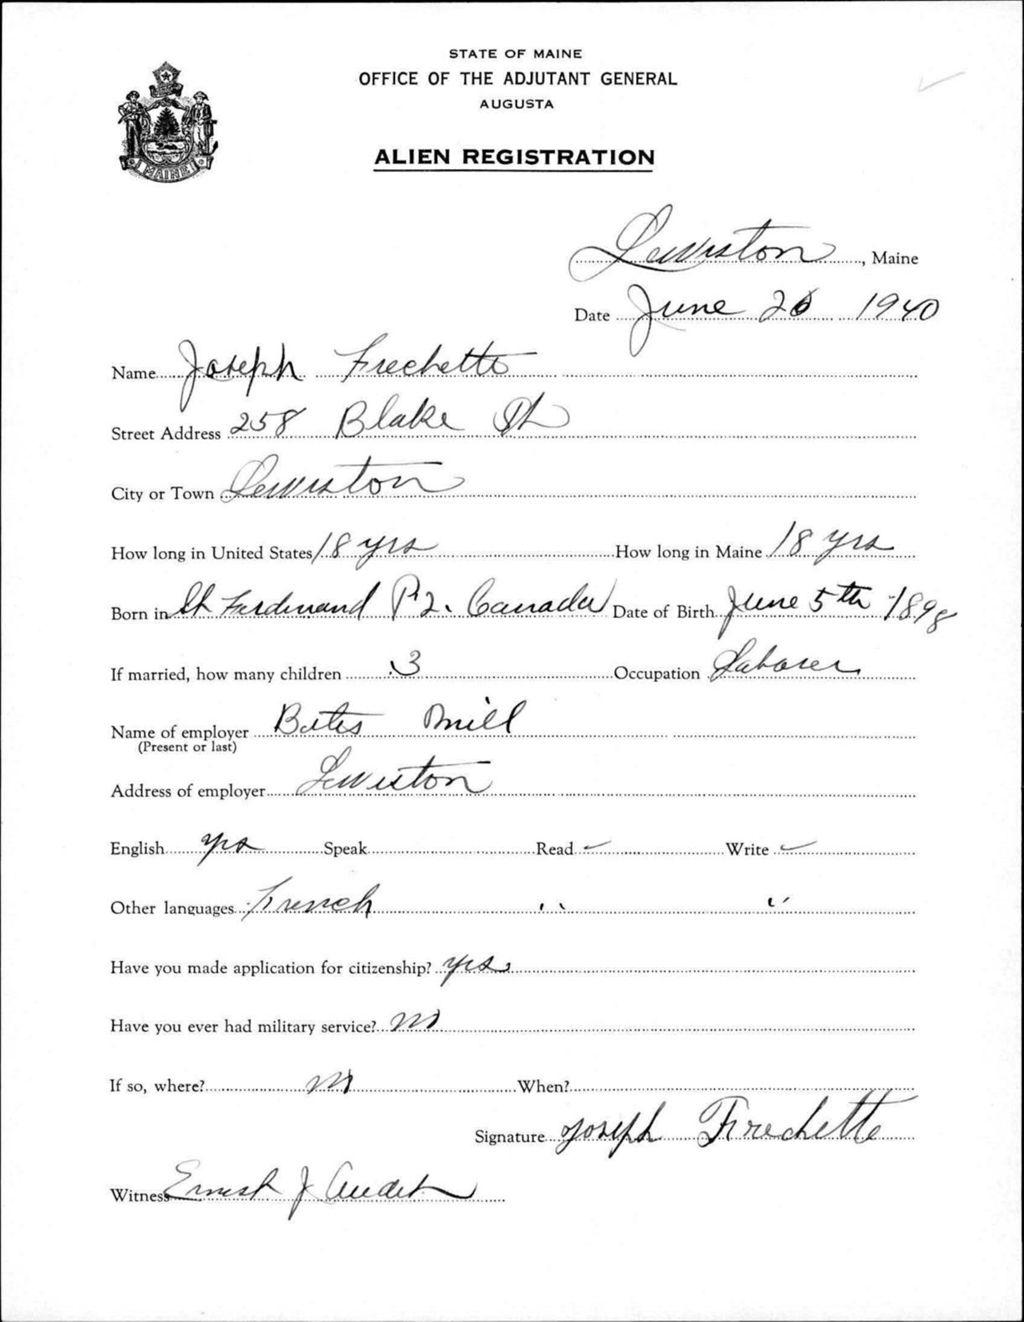 STATE OF MAINE
OFFICE OF THE ADJUTANT GENERAL
AUGUSTA
MAINE
ALIEN REGISTRATION
Lewiston, Maine
Date June 20 1940
Name Joseph Frechette
Street Address 258 Blake St
City or Town Lewiston
How long in United States 18 yrs How long in Maine 18 yrs
Born in St Ferdinand P2. Canada Date of Birth June 5th 1898
If married, how many children 3 Occupation Laborer
Name of employer Bates Mill
(Present or last)
Address of employer Lewiston
English yes Speak Read ✓ Write ✓
Other languages French " "
Have you made application for citizenship? yes
Have you ever had military service? no
If so, where? no When?
Signature Joseph Frechette
Witness Ernest J Audet